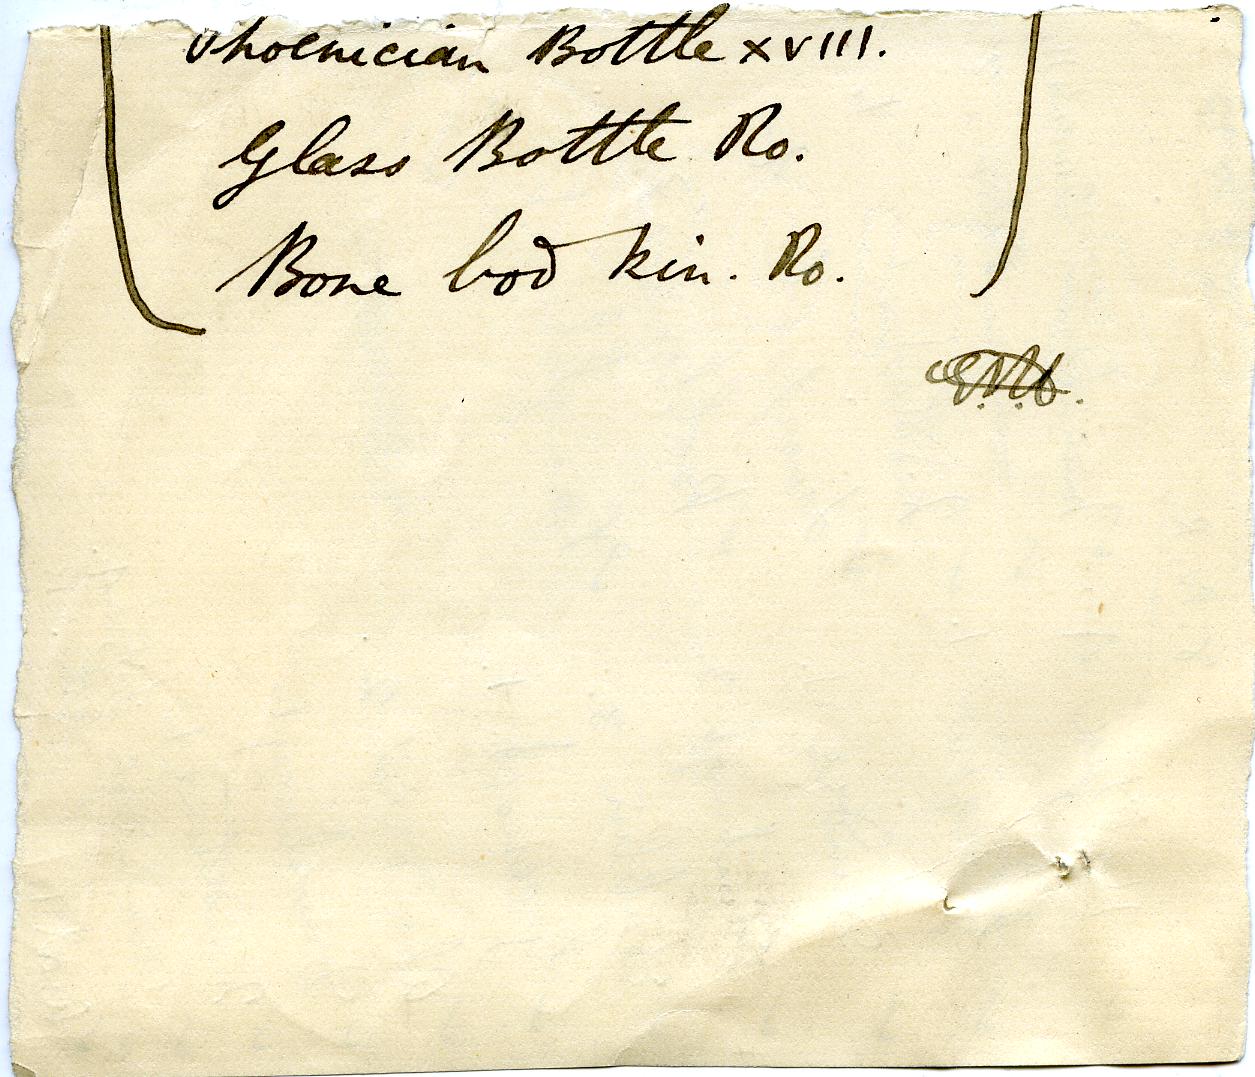 Phoenician Bottle XVIII.
Glass Bottle Ro.
Bone bod kin. Ro.